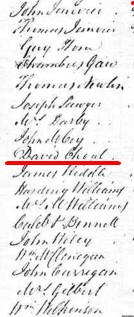 John Janvier
Thomas Janvier
Guy Horn
Chambers Gaw
Thomas Newlin
Joseph Sawyer
Mr. Darby
John McCoy
David Chout
James Riddle
Harding Williams
Mrs. M Williams
Caleb P Bennett
John Wiley
Wm. McClenegan
John Garregan
Mrs. Gilbert
Wm Wilkenson